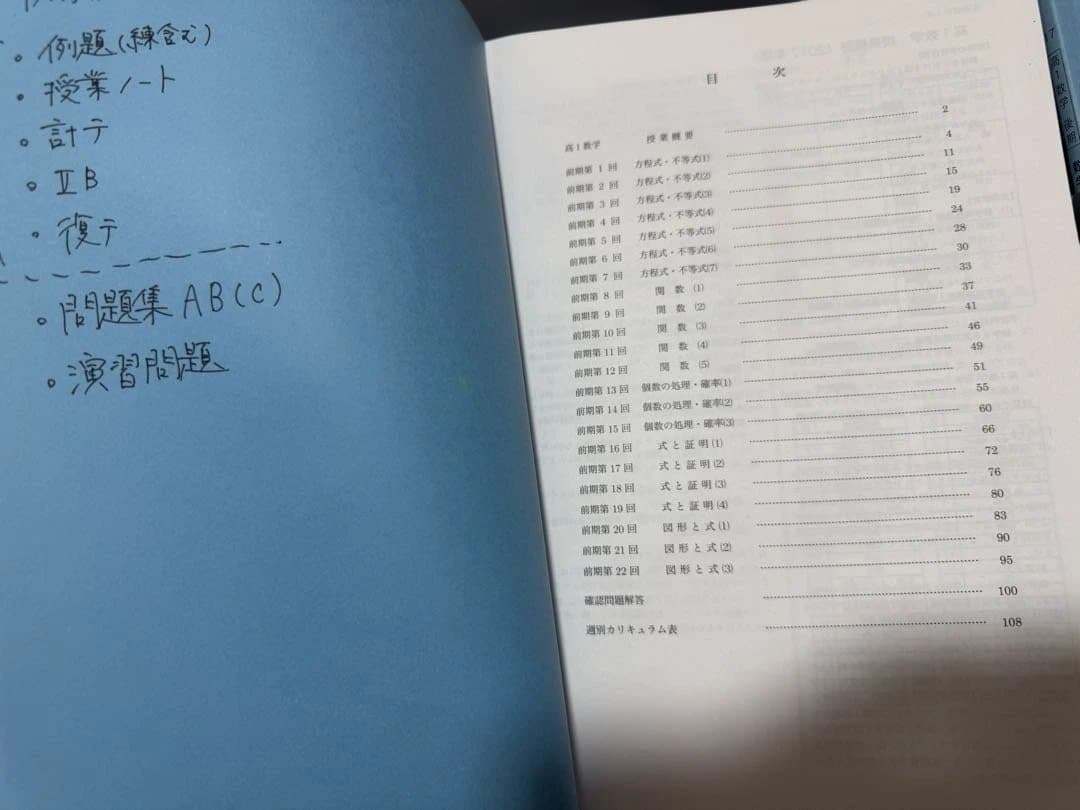 ・例題(練含む)
・授業ノート
・計テ
・ⅡB
・復テ
・問題集AB(C)
・演習問題
目 次
高1数学 授業概要 2
前期第 1 回 方程式・不等式(1) 4
前期第 2 回 方程式・不等式(2) 11
前期第 3 回 方程式・不等式(3) 15
前期第 4 回 方程式・不等式(4) 19
前期第 5 回 方程式・不等式(5) 24
前期第 6 回 方程式・不等式(6) 28
前期第 7 回 方程式・不等式(7) 30
前期第 8 回 関 数 (1) 33
前期第 9 回 関 数 (2) 37
前期第 10 回 関 数 (3) 41
前期第 11 回 関 数 (4) 46
前期第 12 回 関 数 (5) 49
前期第 13 回 個数の処理・確率(1) 51
前期第 14 回 個数の処理・確率(2) 55
前期第 15 回 個数の処理・確率(3) 60
前期第 16 回 式と証明(1) 66
前期第 17 回 式と証明(2) 72
前期第 18 回 式と証明(3) 76
前期第 19 回 式と証明(4) 80
前期第 20 回 図形と式(1) 83
前期第 21 回 図形と式(2) 90
前期第 22 回 図形と式(3) 95
確認問題解答 100
週別カリキュラム表 108
高1数学 後期